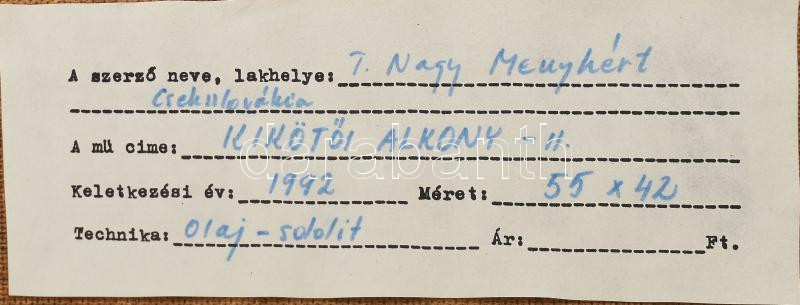 A szerző neve, lakhelye: T. Nagy Menyhért
Csehszlovákia
A mű cime: KIKÖTŐI ALKONY - II.
darabanth
Keletkezési év: 1992 Méret: 55 x 42
Technika: Olaj - sololit Ár: Ft.